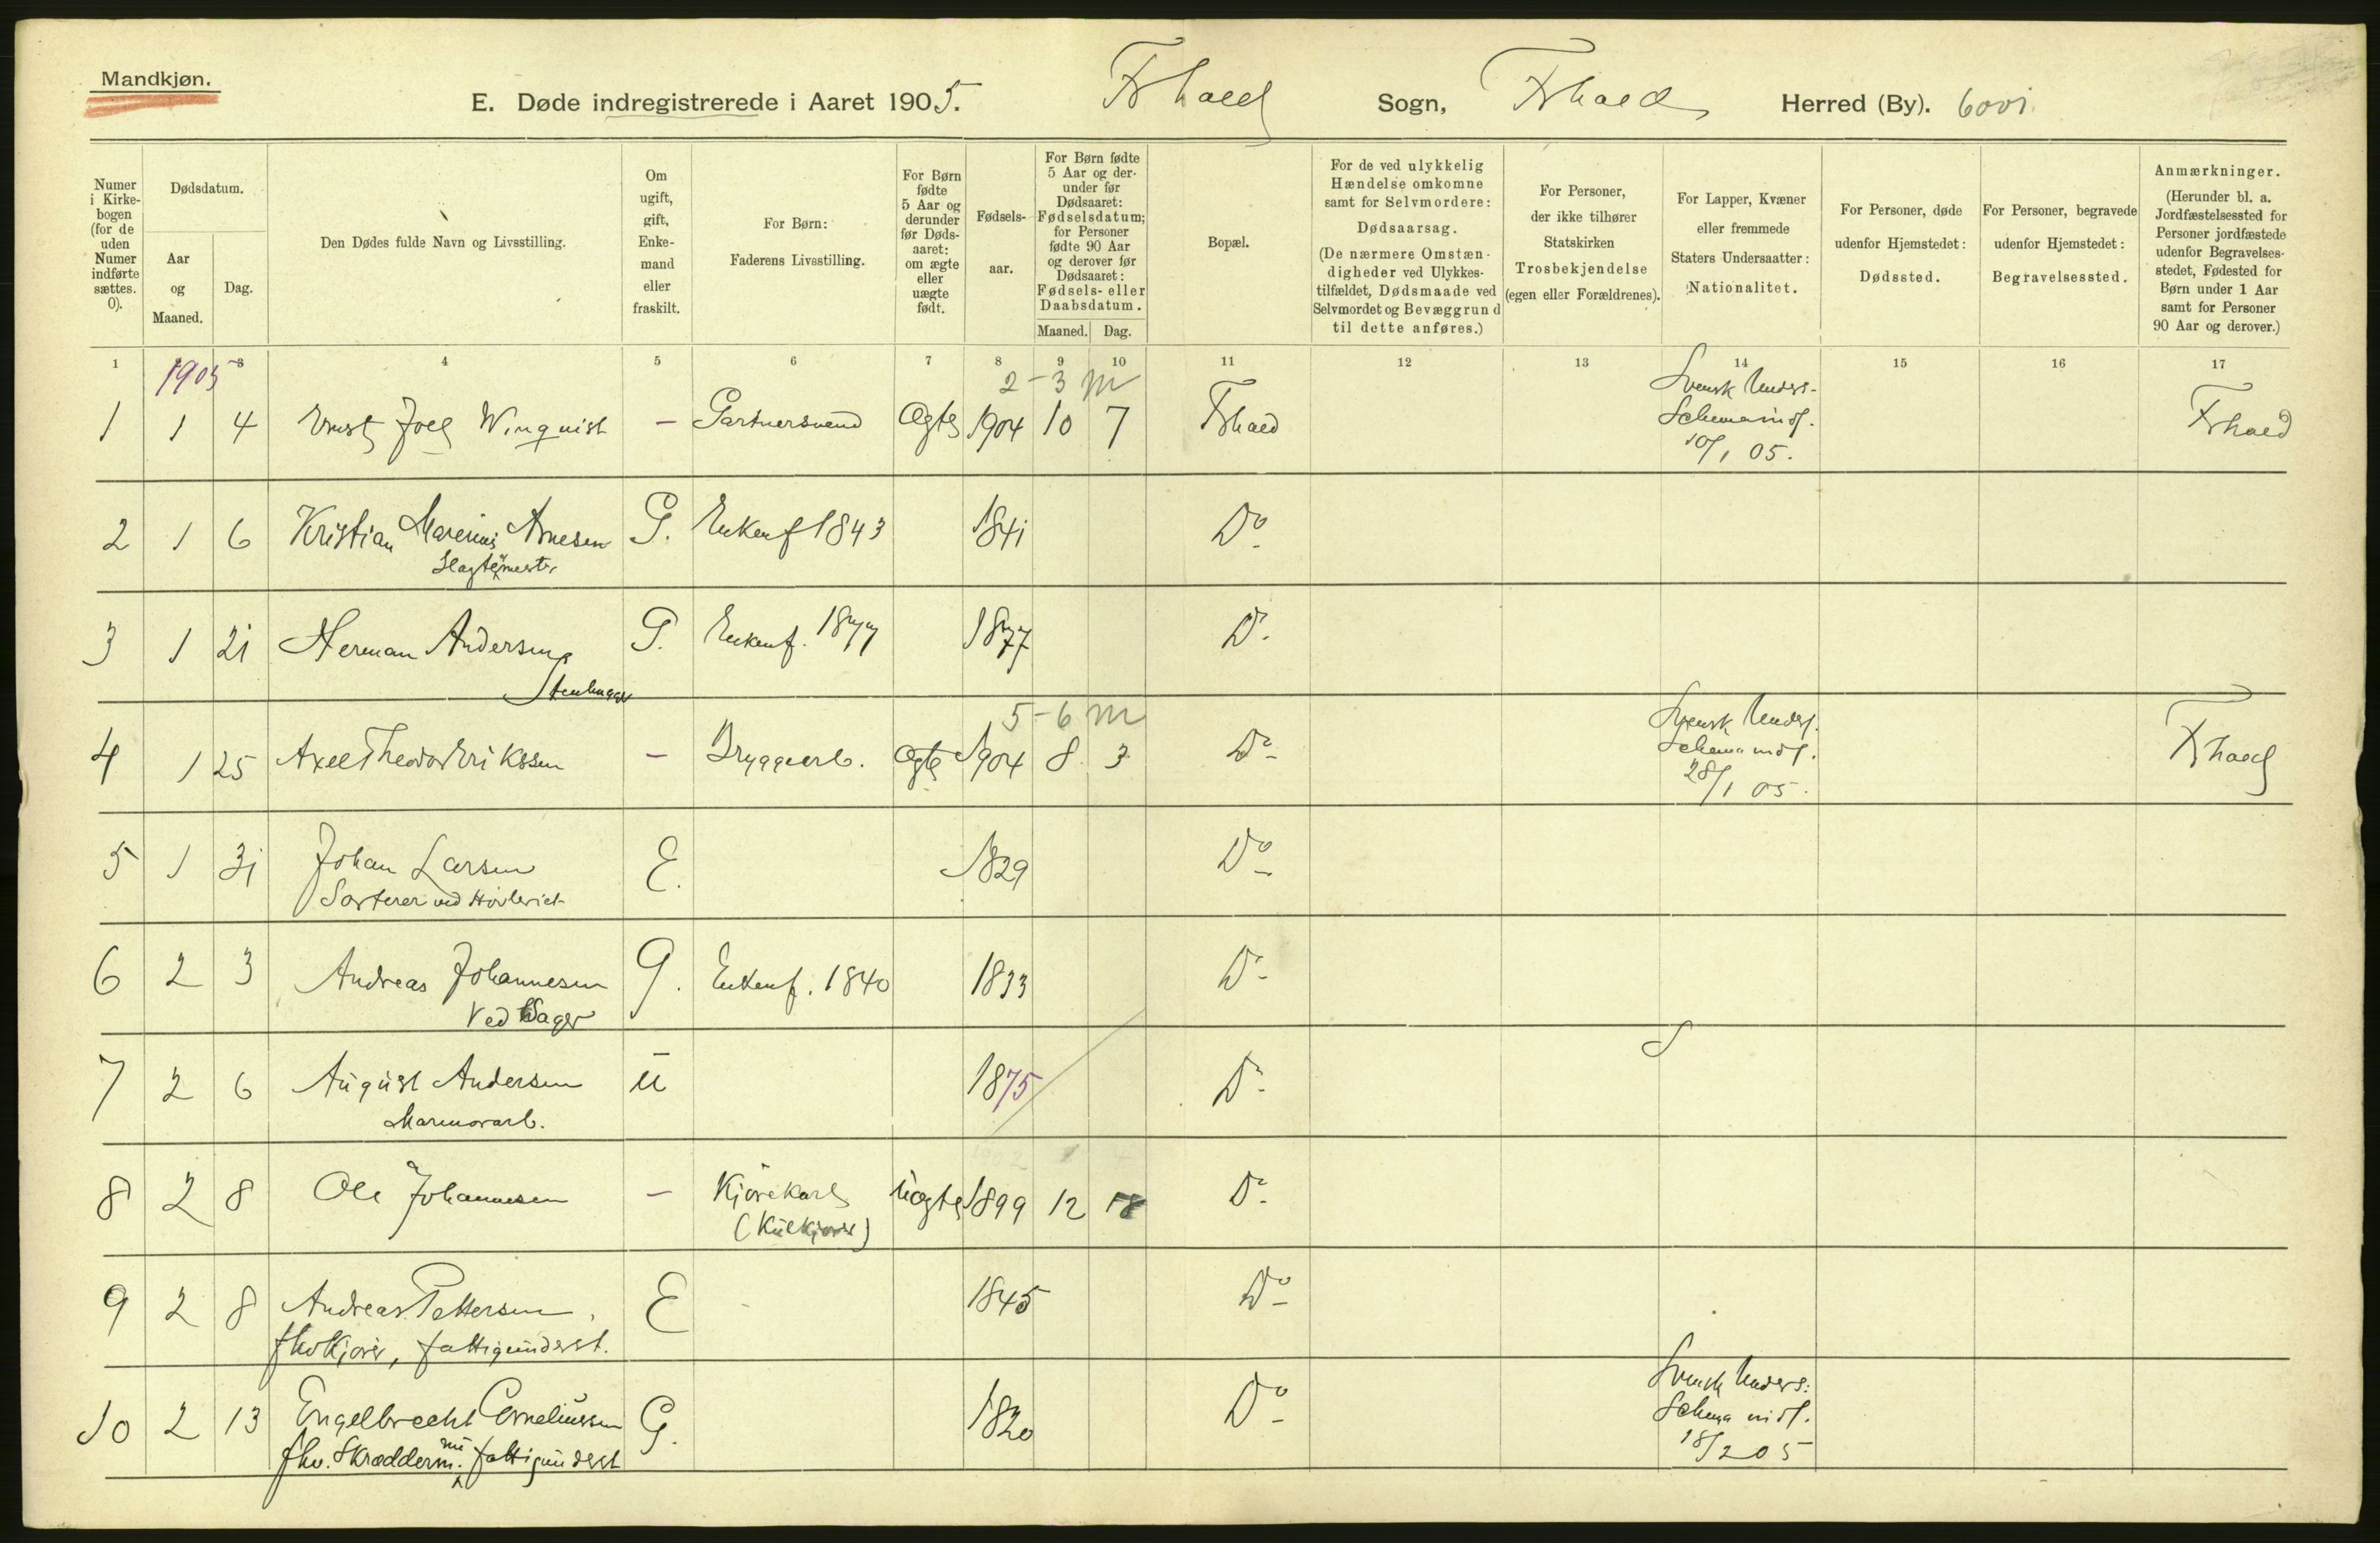 Mandkjøn.
E. Døde indregistrerede i Aaret 1905. Frhald Sogn, Frhald Herred (By).
Numer i Kirkebogen (for de uden Numer indførte sættes. 0).
Dødsdatum.
Aar og Maaned.
Dag.
Den Dødes fulde Navn og Livsstilling.
Om ugift, gift, Enkemand eller fraskilt.
For Børn:
Faderens Livsstilling.
For Børn fødte 5 Aar og derunder før Dødsaaret: om ægte eller uægte født.
Fødselsaar.
For Børn fødte 5 Aar og derunder før Dødsaaret: Fødselsdatum; for Personer fødte 90 Aar og derover før Dødsaaret: Fødsels- eller Daabsdatum.
Maaned. Dag.
Bopæl.
For de ved ulykkelig Hændelse omkomne samt for Selvmordere:
Dødsaarsag.
(De nærmere Omstændigheder ved Ulykkestilfældet, Dødsmaade ved Selvmordet og Bevæggrund til dette anføres.)
For Personer, der ikke tilhører Statskirken
Trosbekjendelse
(egen eller Forældrenes).
For Lapper, Kvæner eller fremmede Staters Undersaatter:
Nationalitet.
For Personer, døde udenfor Hjemstedet:
Dødssted.
For Personer, begravede udenfor Hjemstedet:
Begravelsessted.
Anmærkninger.
(Herunder bl. a. Jordfæstelsessted for Personer jordfæstede udenfor Begravelsesstedet, Fødested for Børn under 1 Aar samt for Personer 90 Aar og derover.)
1 3 4 5 6 7 8 9 10 11 12 13 14 15 16 17
1905
2-3 m
1 1 4 Ernst Joel Winquist - Gartnersvend Ægte 1904 10 7 Frhald Svensk Unders. Schema indf. 10/1 05. Frhald
2 1 6 Kristian Marenius Arnesen G. Enken f 1843 1841 Do
Slagtermester
3 1 21 Herman Andersen G. Enken f. 1877 1877 Do
Stenhugger
5-6 m
4 1 25 Axel Theodor Erikssen - Bryggeriarb. Ægte 1904 8 3 Do Svensk Unders. Schema indf. 28/1 05. Frhald
5 1 31 Johan Larsen E. 1829 Do
Sorterer ved Høvleriet
6 2 3 Andreas Johannesen G. Enken f. 1840 1833 Do
Ved Sager
7 2 6 August Andersen U 1875 Do
Marmorarb.
8 2 8 Ole Johannesen - Kjørekarl Uægte 1899 12 Do
(Kulkjører)
9 2 8 Andreas Pettersen, E 1845 Do
fhv Kjører, fattigunderst.
10 2 13 Engelbrecht Corneliussen G. 1820 Do Svensk Unders: Schema indf. 18/2 05
fhv. Skrædderm. nu fattigunderst